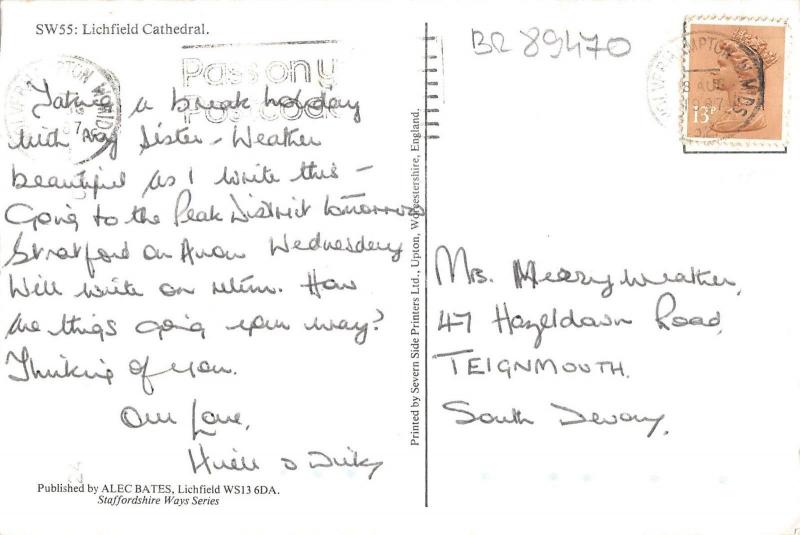 SW55: Lichfield Cathedral.
BR 89470
Pass on y
Postcode
WOLVERHAMPTON W MIDS
13P
Taking a break holiday
with my Sister - Weather
beautiful as I write this -
Going to the Peak District tomorrow
Stratford on Avon Wednesday
Will write on return. How
are things going your way?
Thinking of you.
Our Love,
Published by ALEC BATES, Lichfield WS13 6DA.
Staffordshire Ways Series
Printed by Severn Side Printers Ltd., Upton, Worcestershire, England.
WOLVERHAMPTON W MIDS
8 AUG
Merryweather,
47 Hazeldown Road,
TEIGNMOUTH.
South Devon,